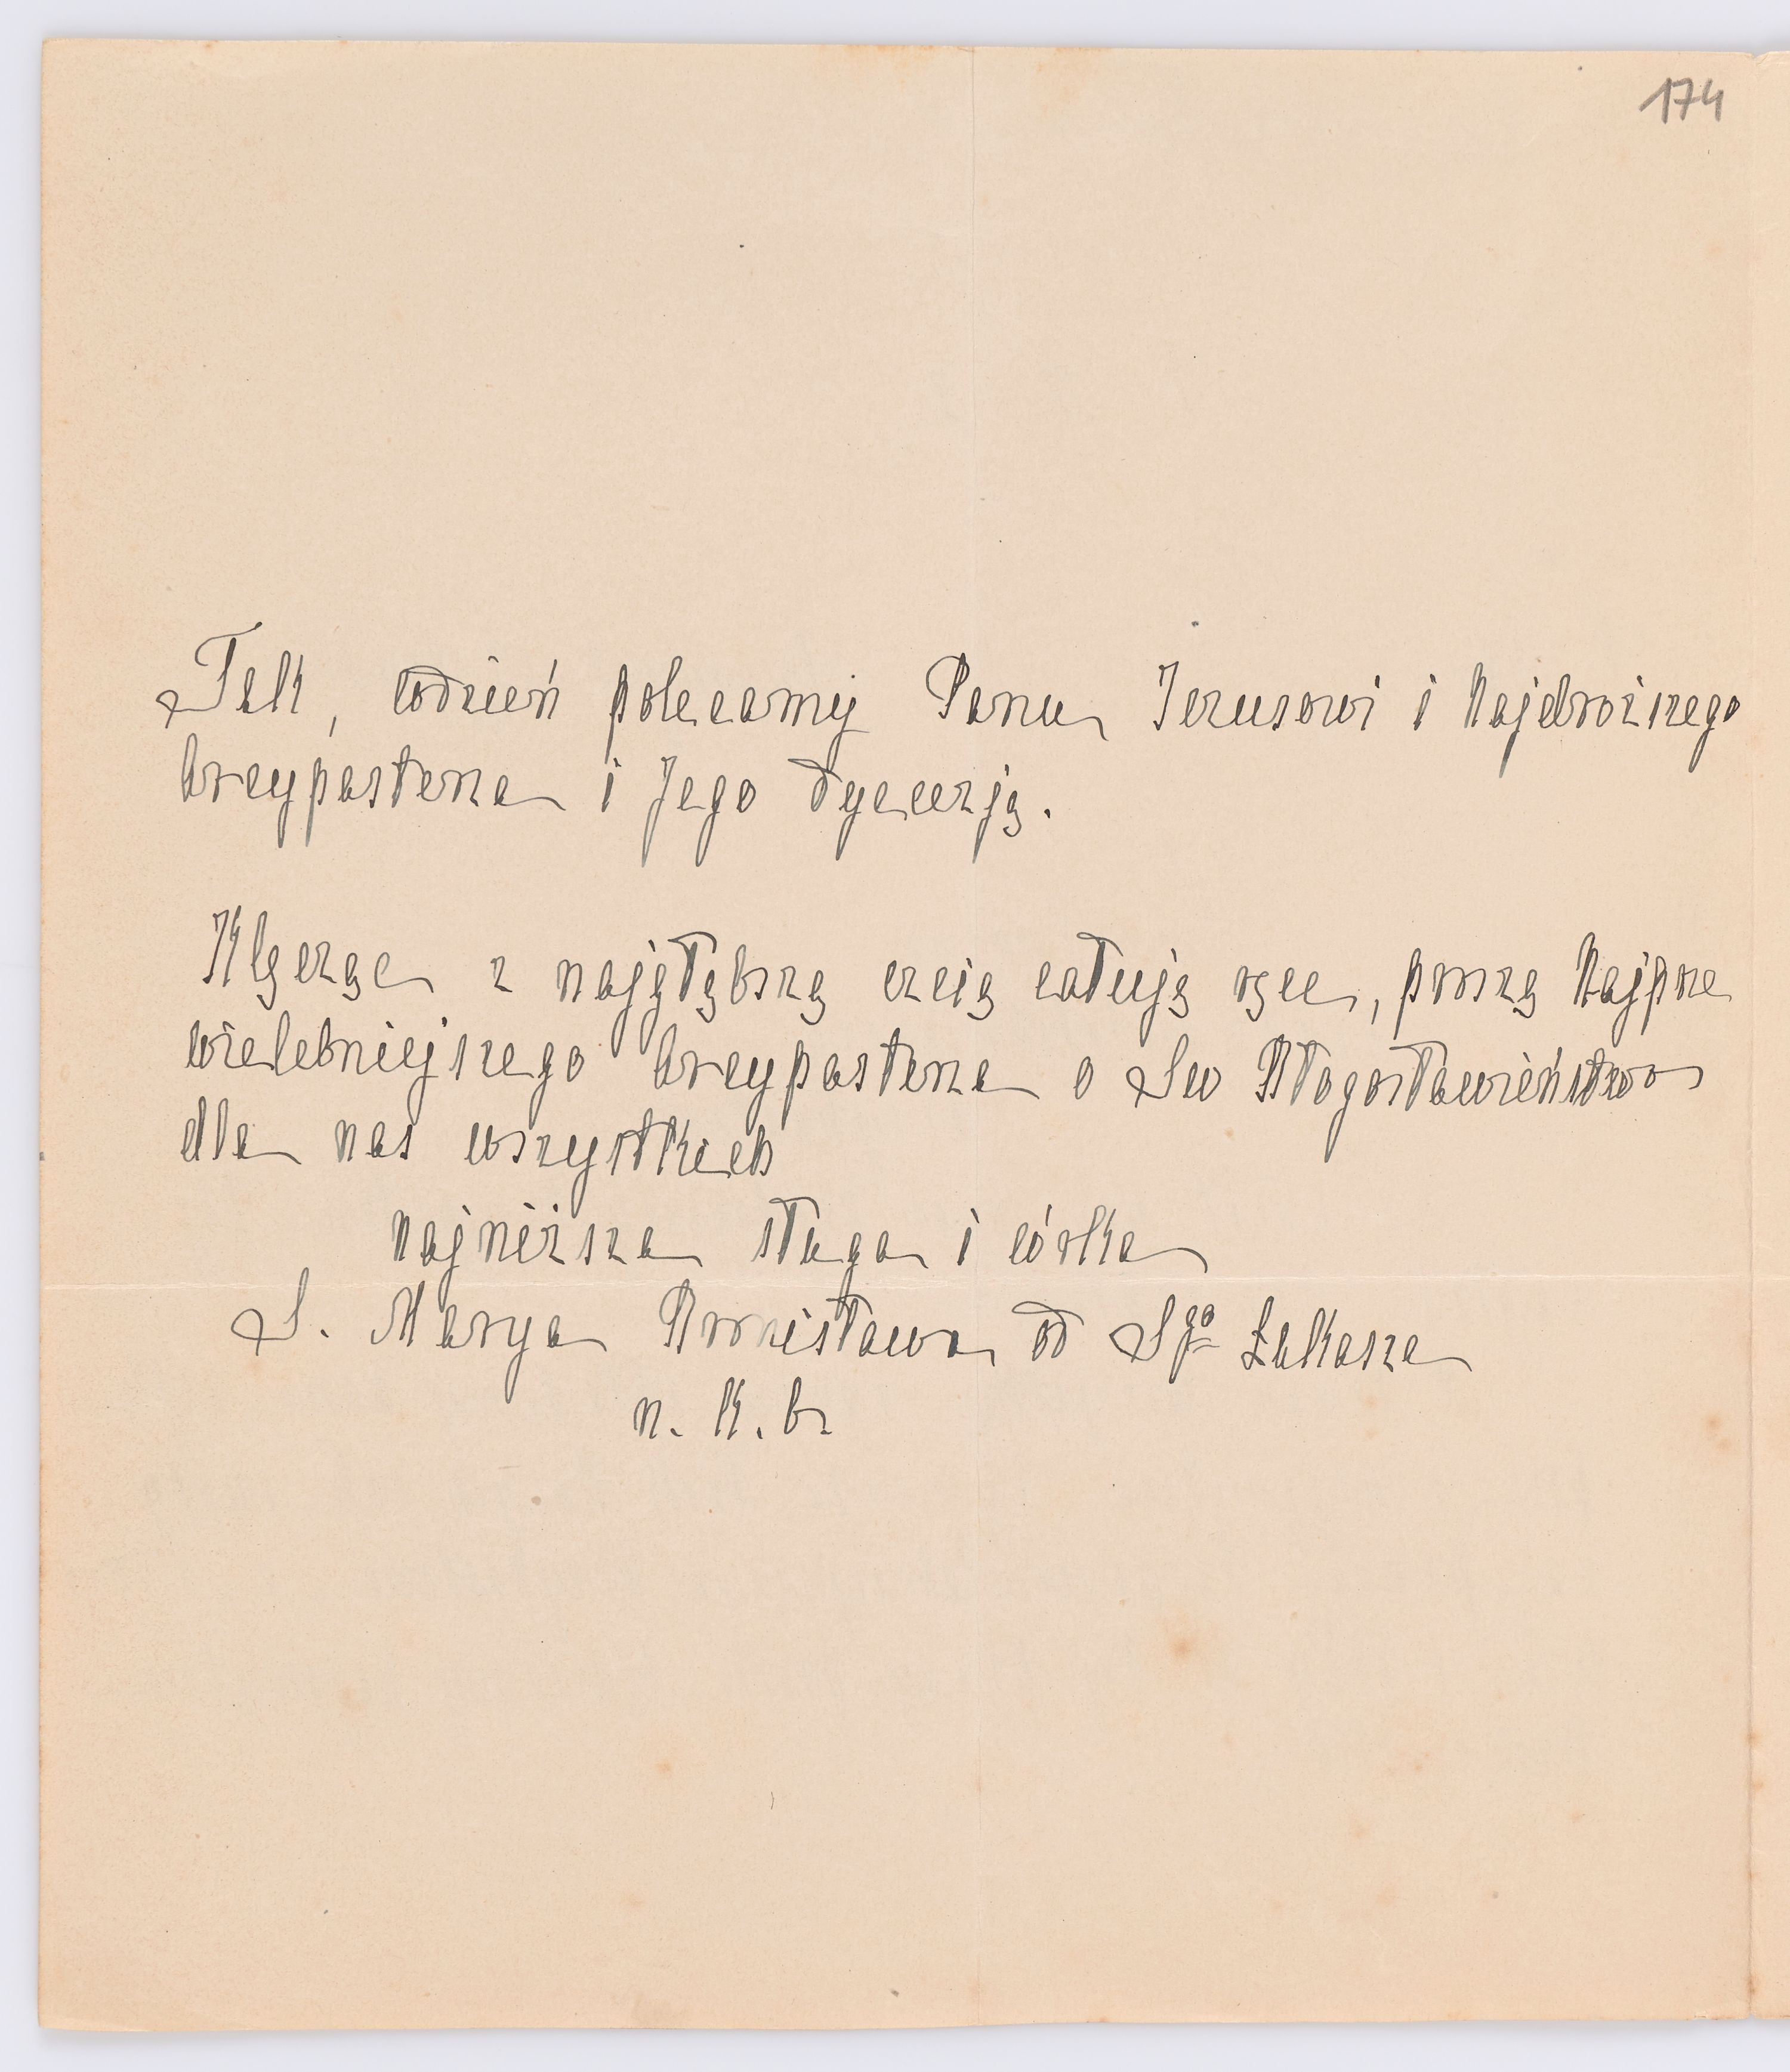 174
Tak, codzień polecamy Panu Jezusowi i Najdroższego
Arcypasterza i Jego dyecezję.
Klęcząc z najgłębszą czcią całuję ręce, proszę Najprze
wielebniejszego Arcypasterza o Św Błogosławieństwo
dla nas wszystkich
najniższa sługa i córka
S. Marya Bronisława od Sgo Łukasza
n. k. b.